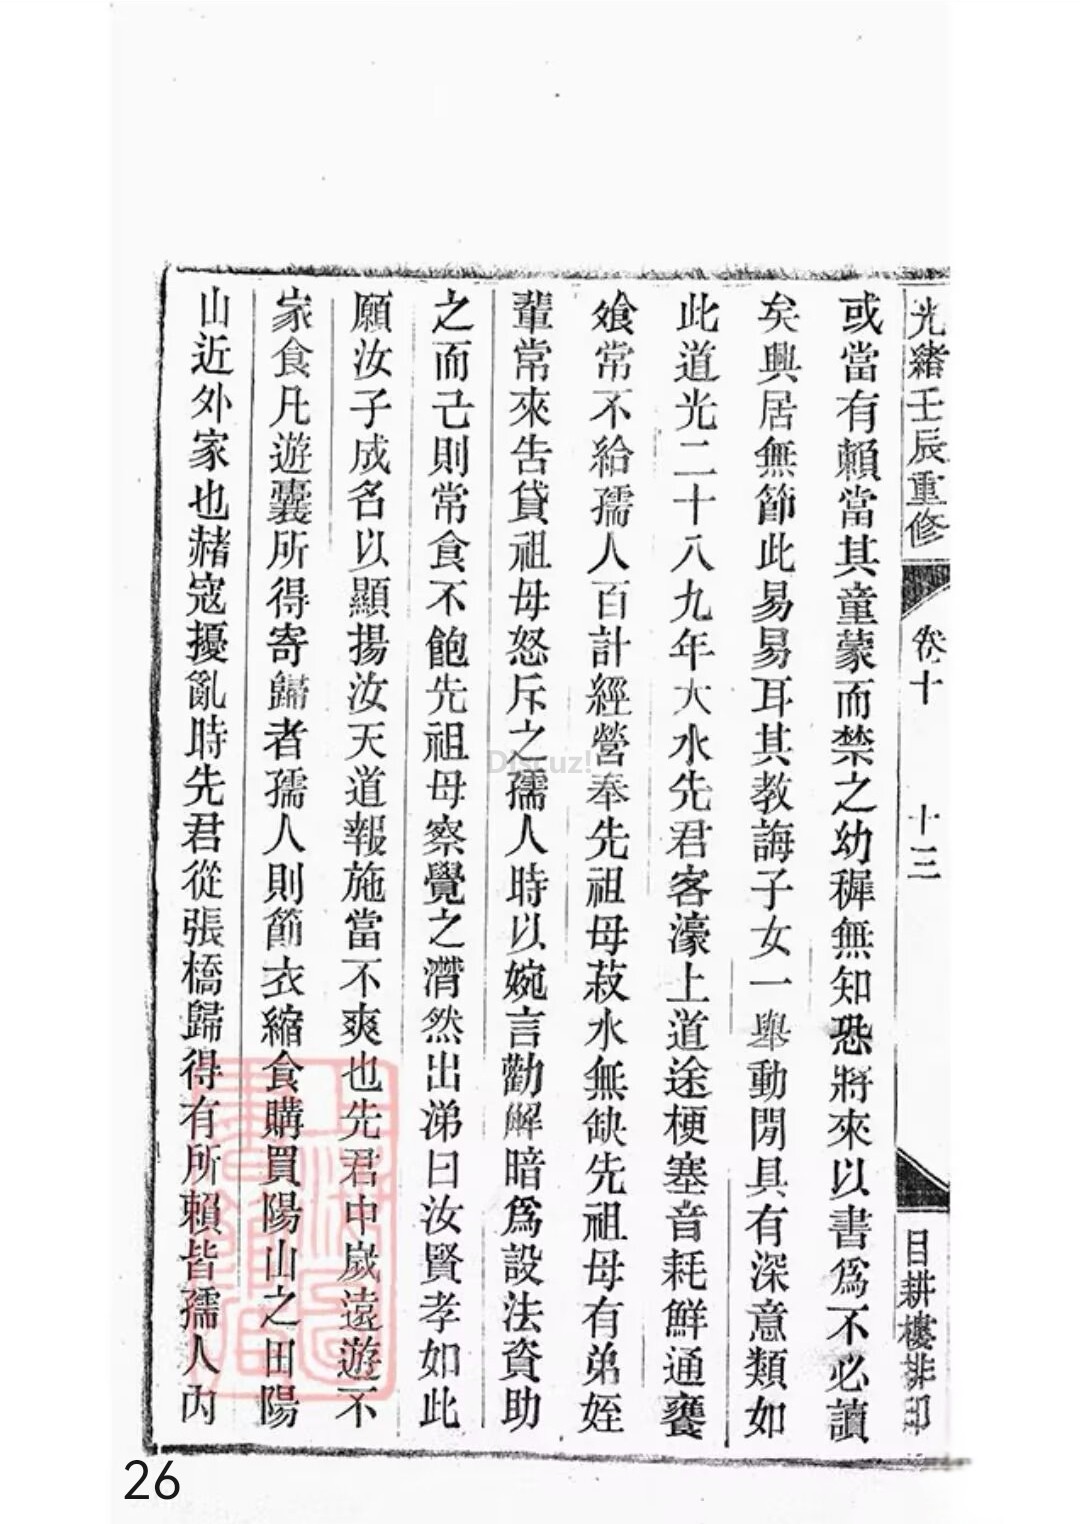 光緒壬辰重修 卷十 十三 目耕樓排印
或當有賴當其童蒙而禁之幼穉無知恐將來以書爲不必讀
矣興居無節此易易耳其教誨子女一舉動閒具有深意類如
此道光二十八九年大水先君客濠上道途梗塞音耗鮮通饔
飧常不給孺人百計經營奉先祖母菽水無缺先祖母有弟姪
輩常來告貸祖母怒斥之孺人時以婉言勸解暗爲設法資助
之而己則常食不飽先祖母察覺之潸然出涕曰汝賢孝如此
願汝子成名以顯揚汝天道報施當不爽也先君中歲遠遊不
家食凡遊囊所得寄歸者孺人則節衣縮食購買陽山之田陽
山近外家也赭寇擾亂時先君從張橋歸得有所賴皆孺人內
上海圖
書館藏
Discuz!
26